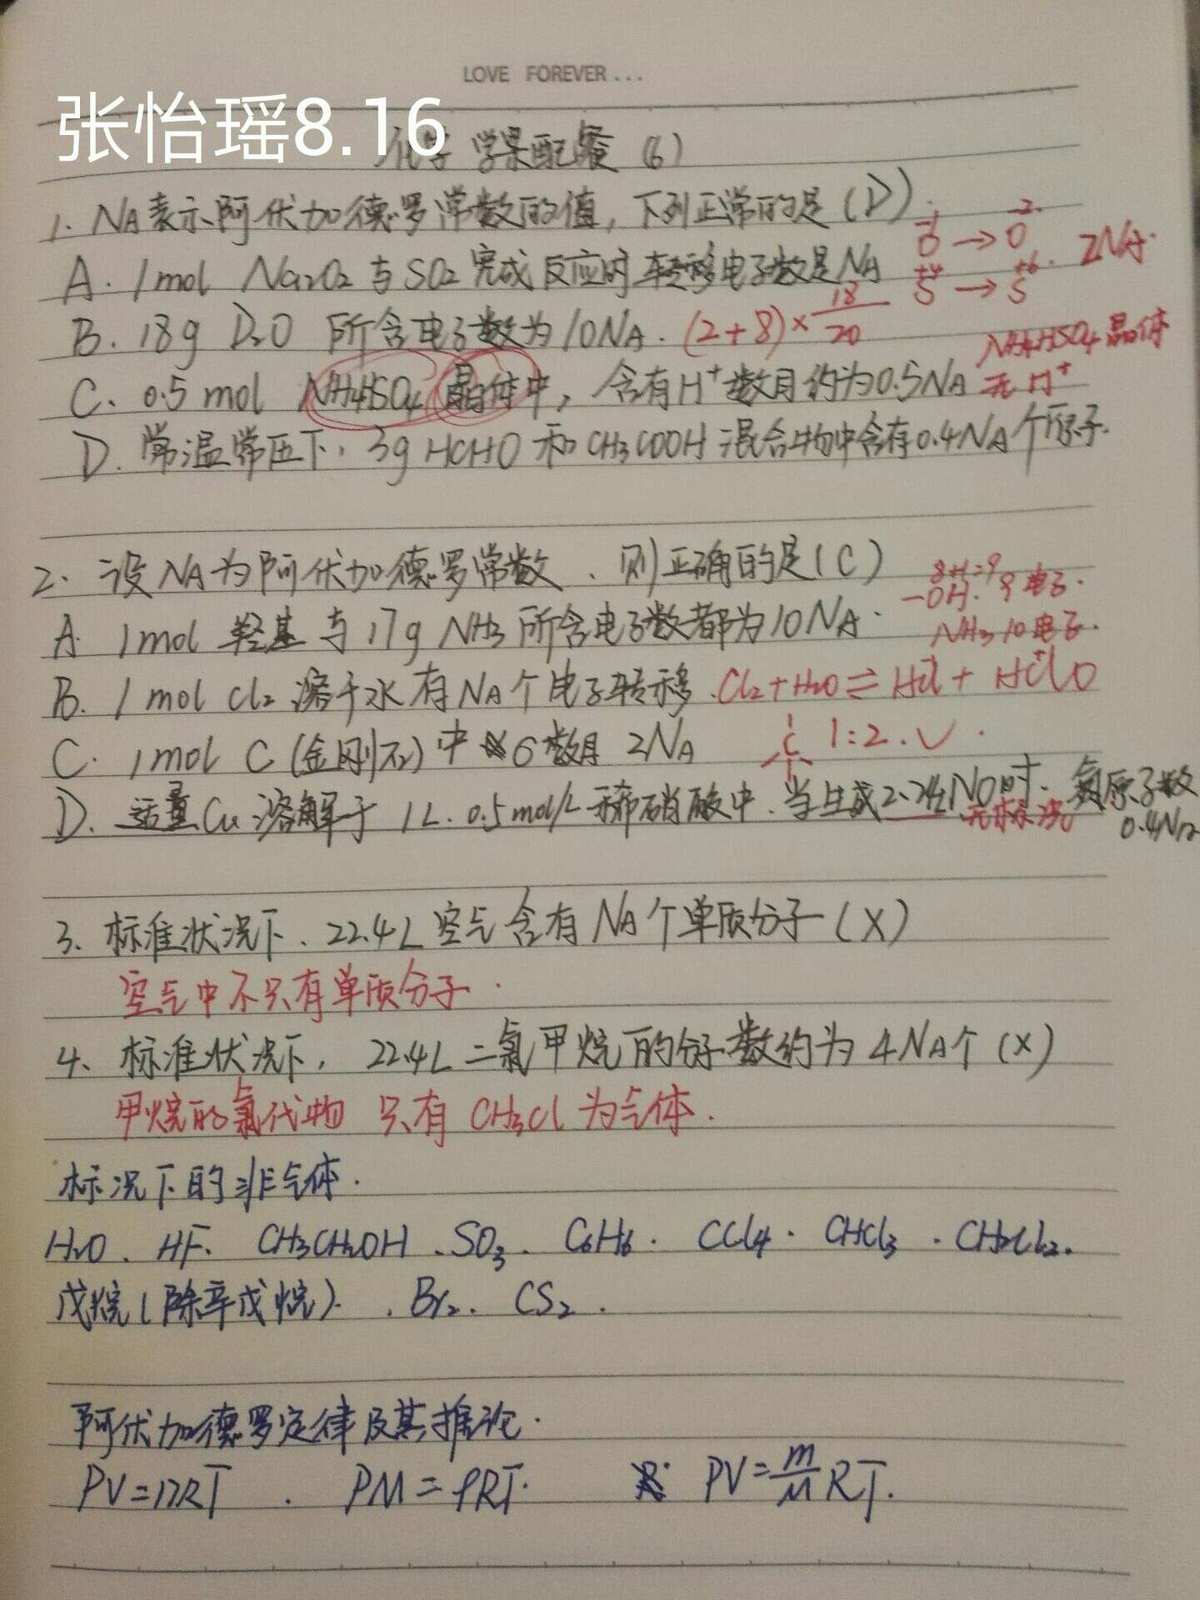 LOVE FOREVER...
张怡瑶8.16
化学 学果配餐 (6)
1. NA表示阿伏加德罗常数的值，下列正常的是(D).
A. 1mol Na2O2与SO2完成反应时转移电子数是NA
-1 -2
O → O
+4 +6
S → S . 2NA.
B. 18g D2O 所含电子数为10NA. (2+8)×18/20
C. 0.5mol NH4HSO4晶体中，含有H+数目约为0.5NA
NH4HSO4晶体
无H+
D. 常温常压下，3g HCHO和CH3COOH混合物中含有0.4NA个原子.
2. 设NA为阿伏加德罗常数、则正确的是(C)
8+1=9
-OH. 9电子.
A 1mol 羟基与17g NH3所含电子数都为10NA.
NH3 10电子.
B. 1mol Cl2溶于水有NA个电子转移. Cl2+H2O⇌HCl+HClO
C. 1mol C(金刚石)中 6数目 2NA C 1:2.√.
D. 适量Cu溶解于1L.0.5mol/L稀硝酸中.当生成2.24LNO时.氮原子数
无标况 0.4NA
3、标准状况下、22.4L空气含有NA个单质分子(X)
空气中不只有单质分子.
4、标准状况下，22.4L二氯甲烷的分子数约为4NA个(X)
甲烷的氯代物 只有CH3Cl为气体.
标况下的非气体.
H2O、HF、CH3CH2OH、SO3、C6H6. CCl4. CHCl3. CH2Cl2.
戊烷(除辛戊烷). . Br2. CS2.
阿伏加德罗定律及其推论.
PV=nRT . PM=ρRT. PV=m/M RT.